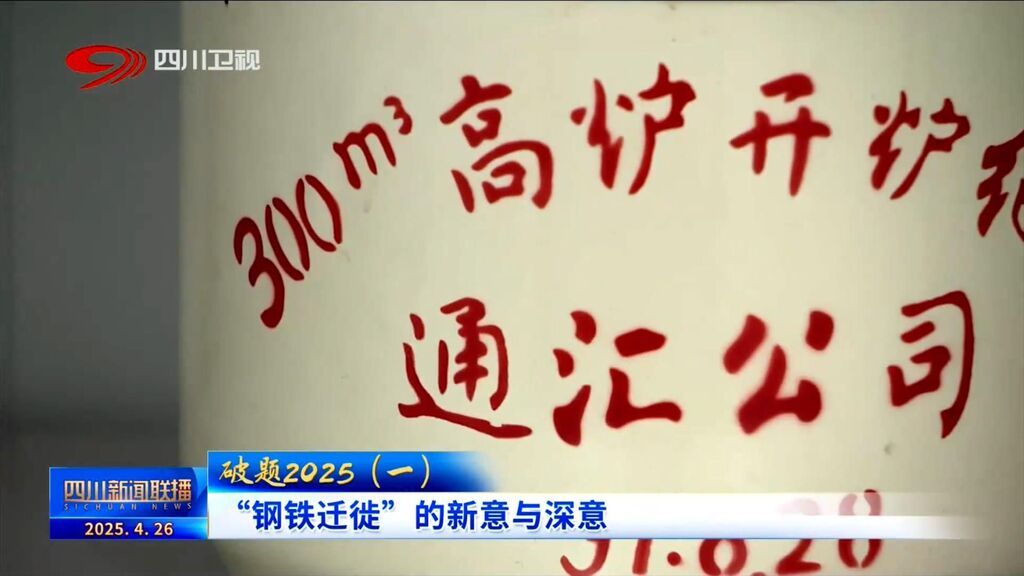 四川卫视
300m³高炉开炉
通汇公司
破题2025（一）
四川新闻联播
SICHUAN NEWS
2025.4.26
“钢铁迁徙”的新意与深意